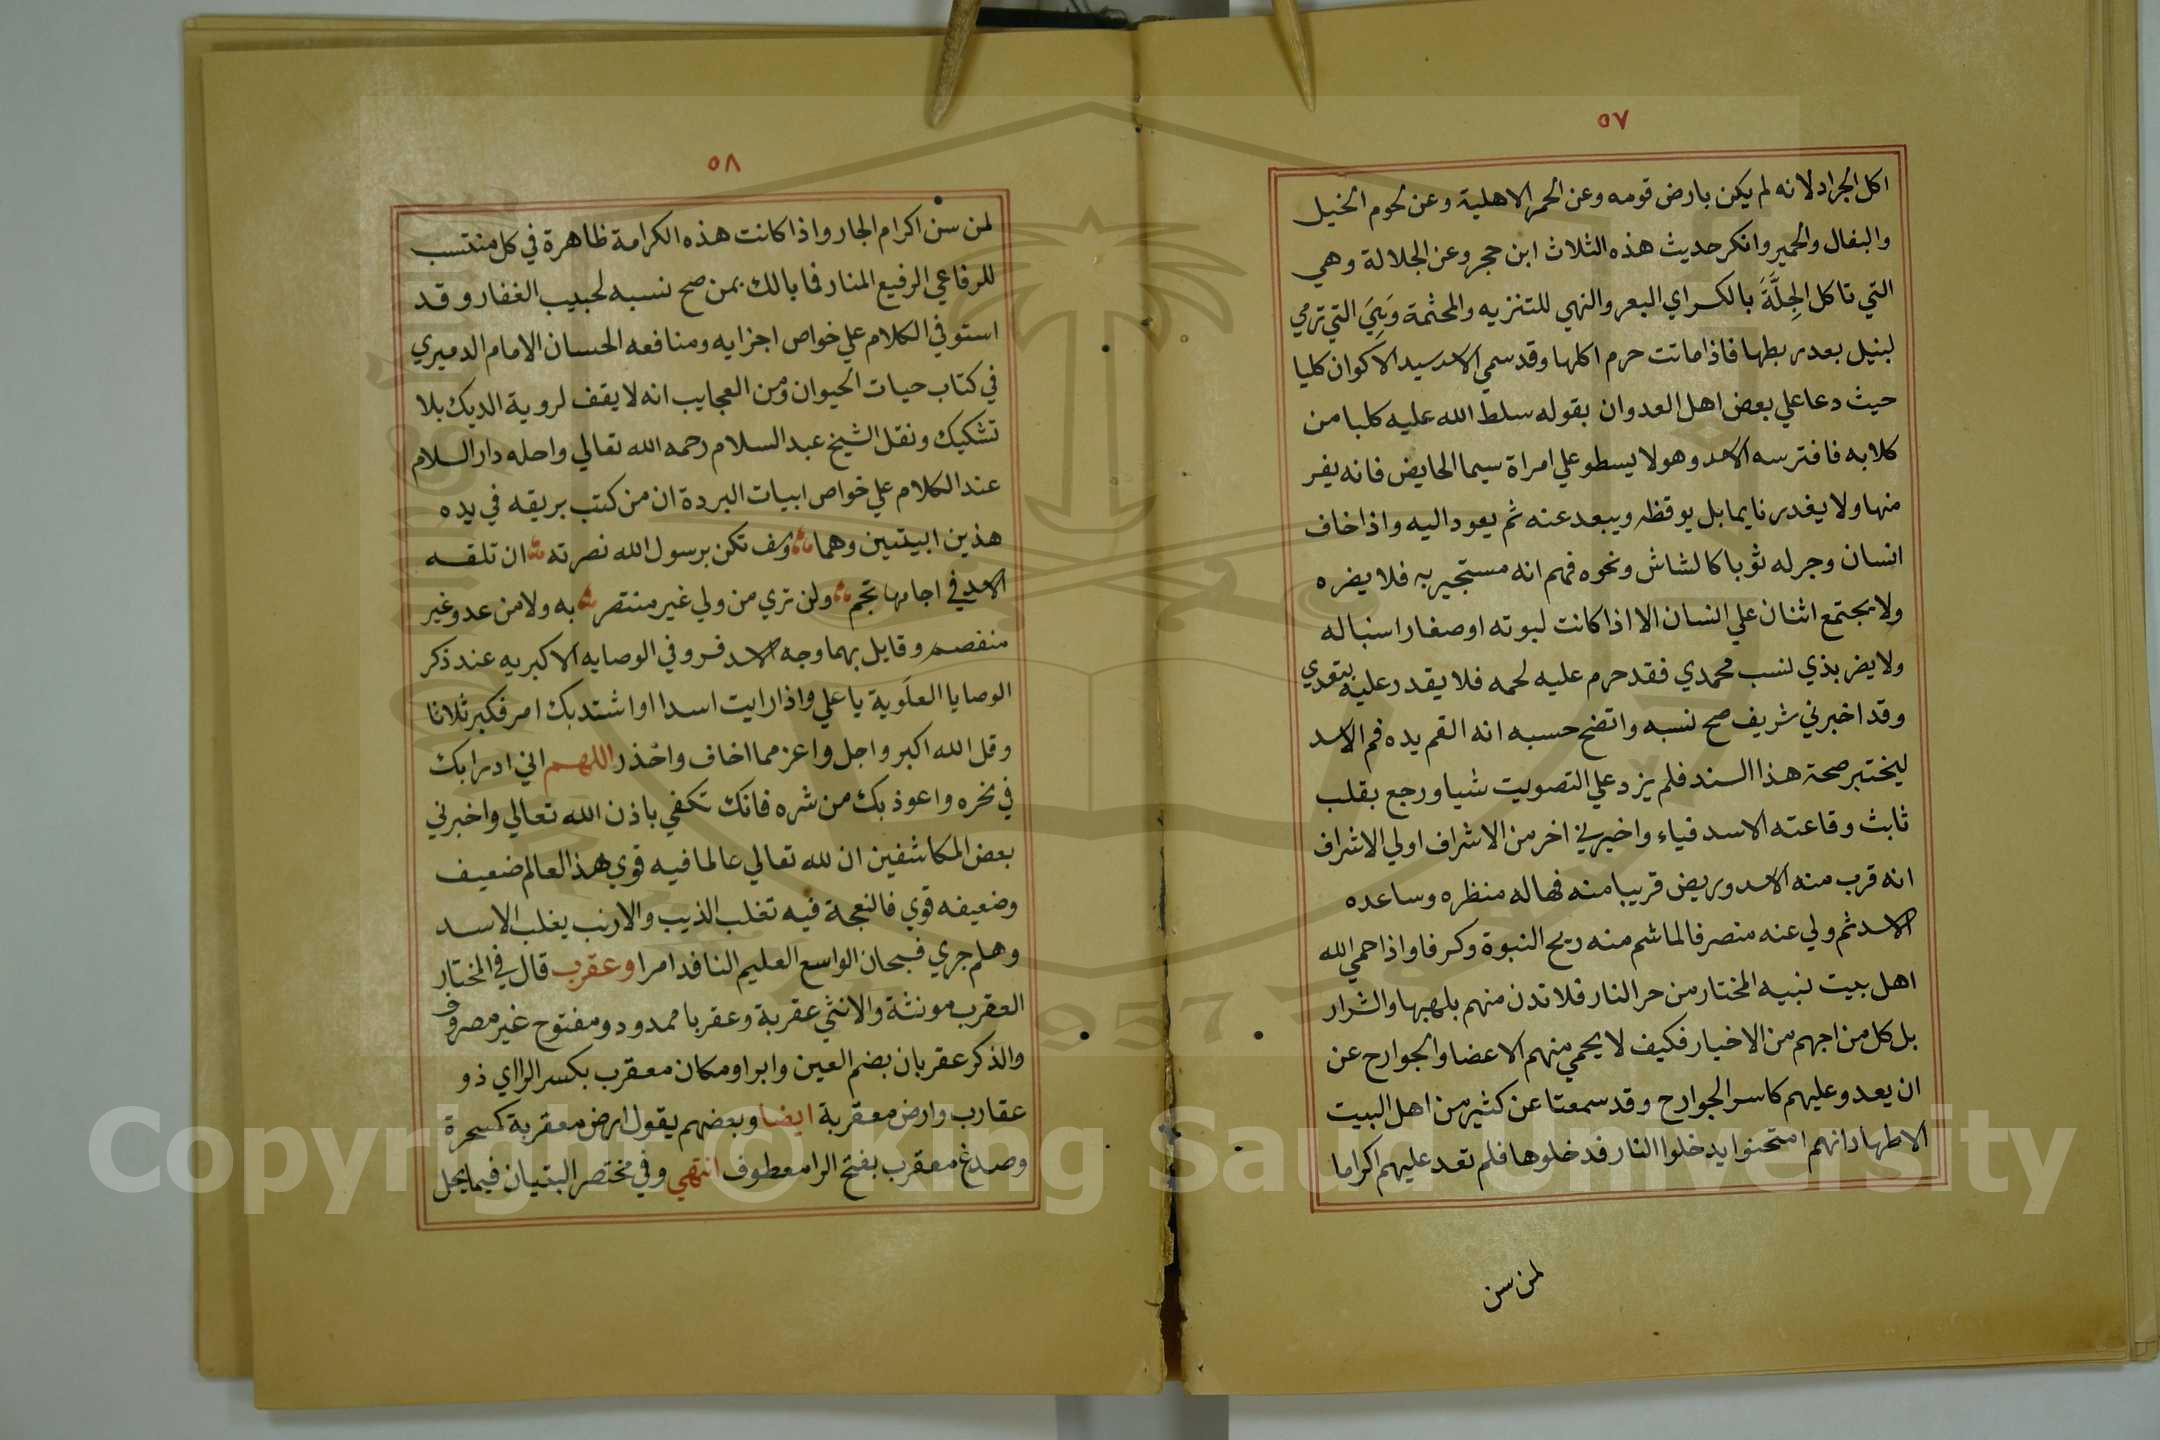 ٥٧
اكل الجراد لانه لم يكن بارض قومه وعن الحمر الاهلية وعن لحوم الخيل
والبغال والحمير وانكر حديث هذه الثلاث ابن حجر وعن الجلالة وهي
التي تاكل الجِلَّةَ بالكسر اي البعر والنهي للتنزيه والمجثمة وَهِيَ التي ترمي
لبنيل بعد ربطها فاذا ماتت حرم اكلها وقد سمي الاسد سيد الاكوان كلبا
حيث دعا علي بعض اهل العدوان بقوله سلط الله عليه كلبا من
كلابه فافترسه الاسد وهو لا يسطو علي امراة سيما الحايض فانه يفر
منها ولا يغدر نايما بل يوقظه ويبعد عنه ثم يعود اليه واذا خاف
انسان وجر له ثوبا كالشاش ونحوه فهم انه مستجير به فلا يضره
ولا يجتمع اثنان علي النسان الا اذا كانت لبوته او صغار اسباله
ولا يضر بذي لنسب محمدي فقد حرم عليه لحمه فلا يقدر عليه يتعدي
وقد اخبرني شريف صح نسبه واتضح حسبه انه القم يده فم الاسد
ليختبر صحة هذا السند فلم يزد علي التصويت شيا ورجع بقلب
ثابث وقاعته الاسد فياء واخبرني اخر من الاشراف اولي الاشراف
انه قرب منه الاسد وربض قريبا منه فهاله منظره وساعده
الاسد ثم ولي عنه منصرفا لما شم منه ريح النبوة وكرفا واذا حمي الله
اهل بيت نبيه المختار من حر النار فلا تدن منهم بلهبها والشرار
بل كل من اجهم من الاخيار فكيف لا يحمي منهم الاعضا والجوارح عن
ان يعدو عليهم كاسر الجوارح وقد سمعتا عن كثير من اهل البيت
الاطهار انهم امتحنوا يدخلوا النار فدخلوها فلم تعد عليهم اكراما
لمن سن
٥٨
لمن سن اكرام الجار واذا كانت هذه الكرامة ظاهرة في كل منتسب
للرفاعي الرفيع المنار فما بالك بمن صح نسبه لحبيب الغفار وقد
استوفي الكلام علي خواص اجزايه ومنافعه الحسان الامام الدميري
في كتاب حيات الحيوان ومن العجايب انه لا يقف لروية الديك بلا
تشكيك ونقل الشيخ عبد السلام رحمه الله تعالي واحله دار السلام
عند الكلام علي خواص ابيات البردة ان من كتب بريقه في يده
هذين ابيتين وهما ومن تكن برسول الله نصرته ان تلقه
الاسد في اجامها تجم ولن تري من ولي غير منتصر به ولا من عدو غير
منفصم وقابل بهما وجه الاسد فر وفي الوصايه الاكبريه عند ذكر
الوصايا العلَوية يا علي واذا رايت اسدا او اشتد بك امر فكبر ثلاثا
وقل الله اكبر واجل واعز مما اخاف واحْذر اللهم اني ادرا بك
في نحره واعوذ بك من شره فانك تكفي باذن الله تعالي واخبرني
بعض المكاشفين ان لله تعالي عالما فيه قوي هذا العالم ضعيف
وضعيفه قوي فالنعجة فيه تغلب الذيب والارنب يغلب الاسد
وهلم جري فسبحان الواسع العليم النافد امرا وعقرب قال في المختار
العقرب مونثة والانثي عقربة وعقربا ممدود ومفتوح غير مصروف
والذكر عقربان بضم العين وابراو مكان معقرب بكسر الراي ذو
عقارب وارض معقربة ايضا وبعضهم يقول ارض معقربة كسحرة
وصدغ معقرب بفتح الرا معطوف انتهي وفي مختصر البتيان فيما يحل
Copyright © King Saud University
1957